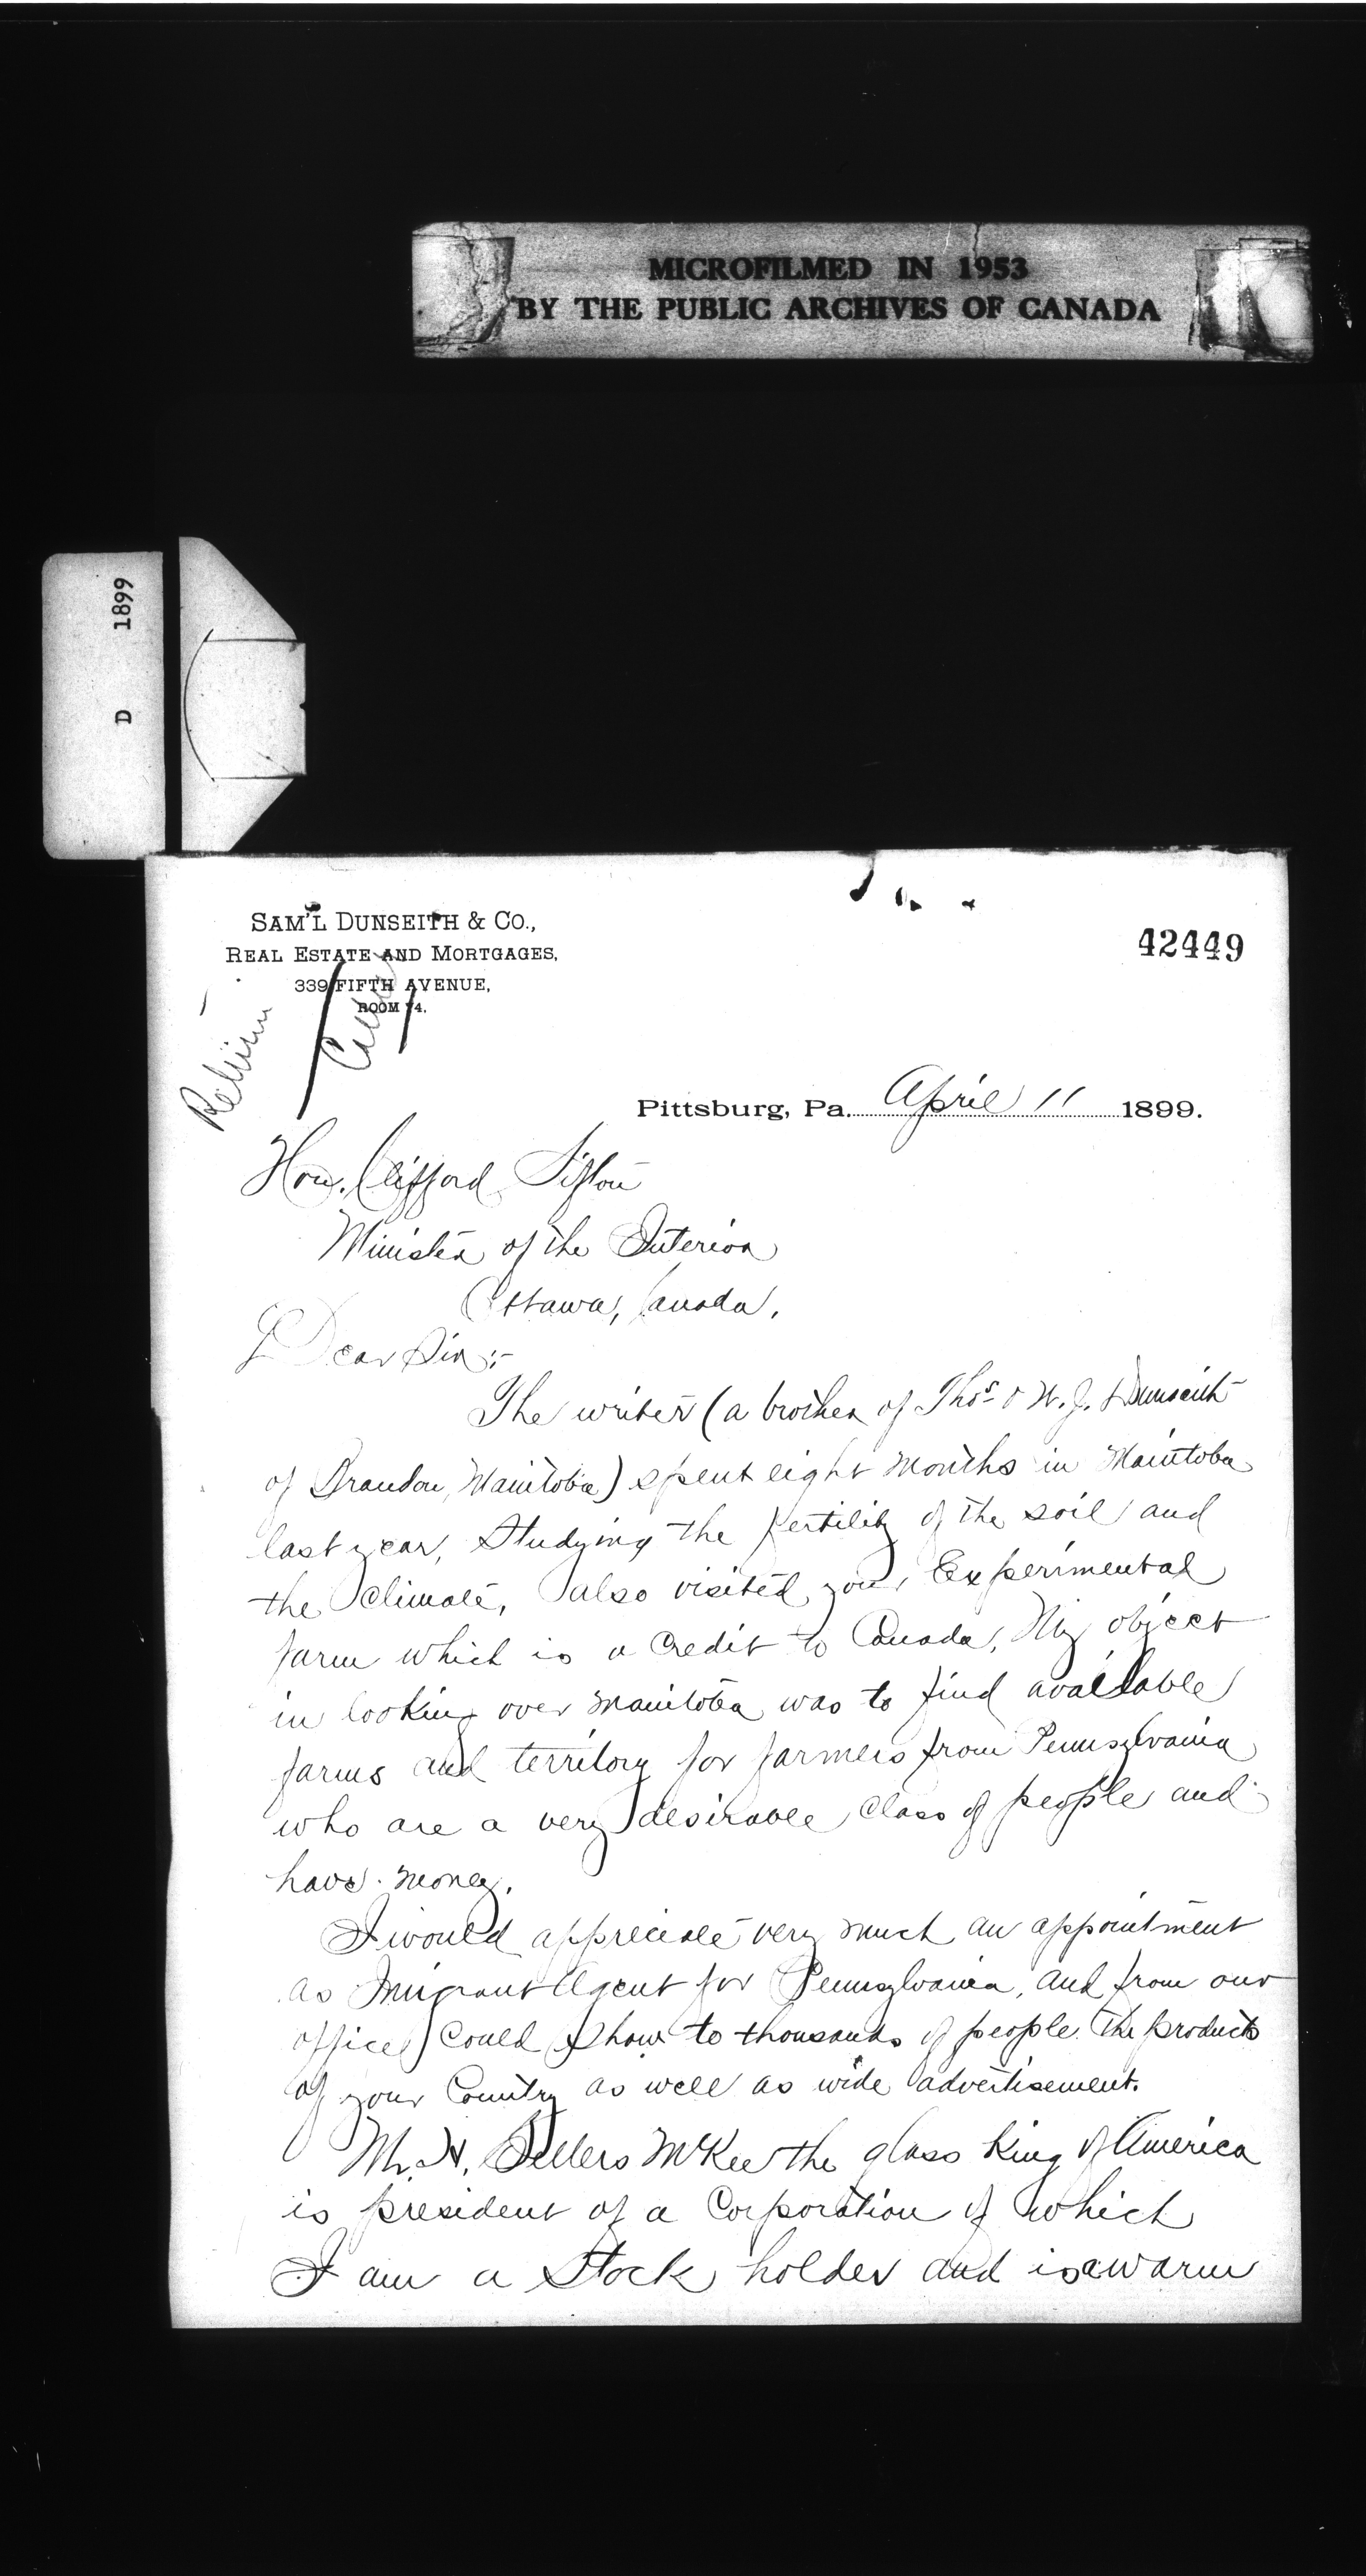 MICROFILMED IN 1953
BY THE PUBLIC ARCHIVES OF CANADA
D 1899
SAM'L DUNSEITH & CO.,
REAL ESTATE AND MORTGAGES,
339 FIFTH AVENUE,
ROOM 74.
42449
Pittsburg, Pa. April 11 1899.
Hon. Clifford Sifton
Minister of the Interior
Ottawa, Canada,
Dear Sir:-
The writer (a brother of Thos & W. J. Dunseith
of Brandon, Manitoba) spent eight months in Manitoba
last year, Studying the fertility of the soil and
the climate, also visited your Experimental
farm which is a Credit to Canada, My object
in looking over Manitoba was to find available
farms and territory for farmers from Pennsylvania
who are a very desirable Class of people and
have money.
I would appreciate very much an appointment
as Imigrant Agent for Pennsylvania, and from our
office could show to thousands of people the products
of your Country as well as wide advertisement.
Mr. H. Sellers McKee the glass King of America
is president of a Corporation of which
I am a Stock holder and is a warm